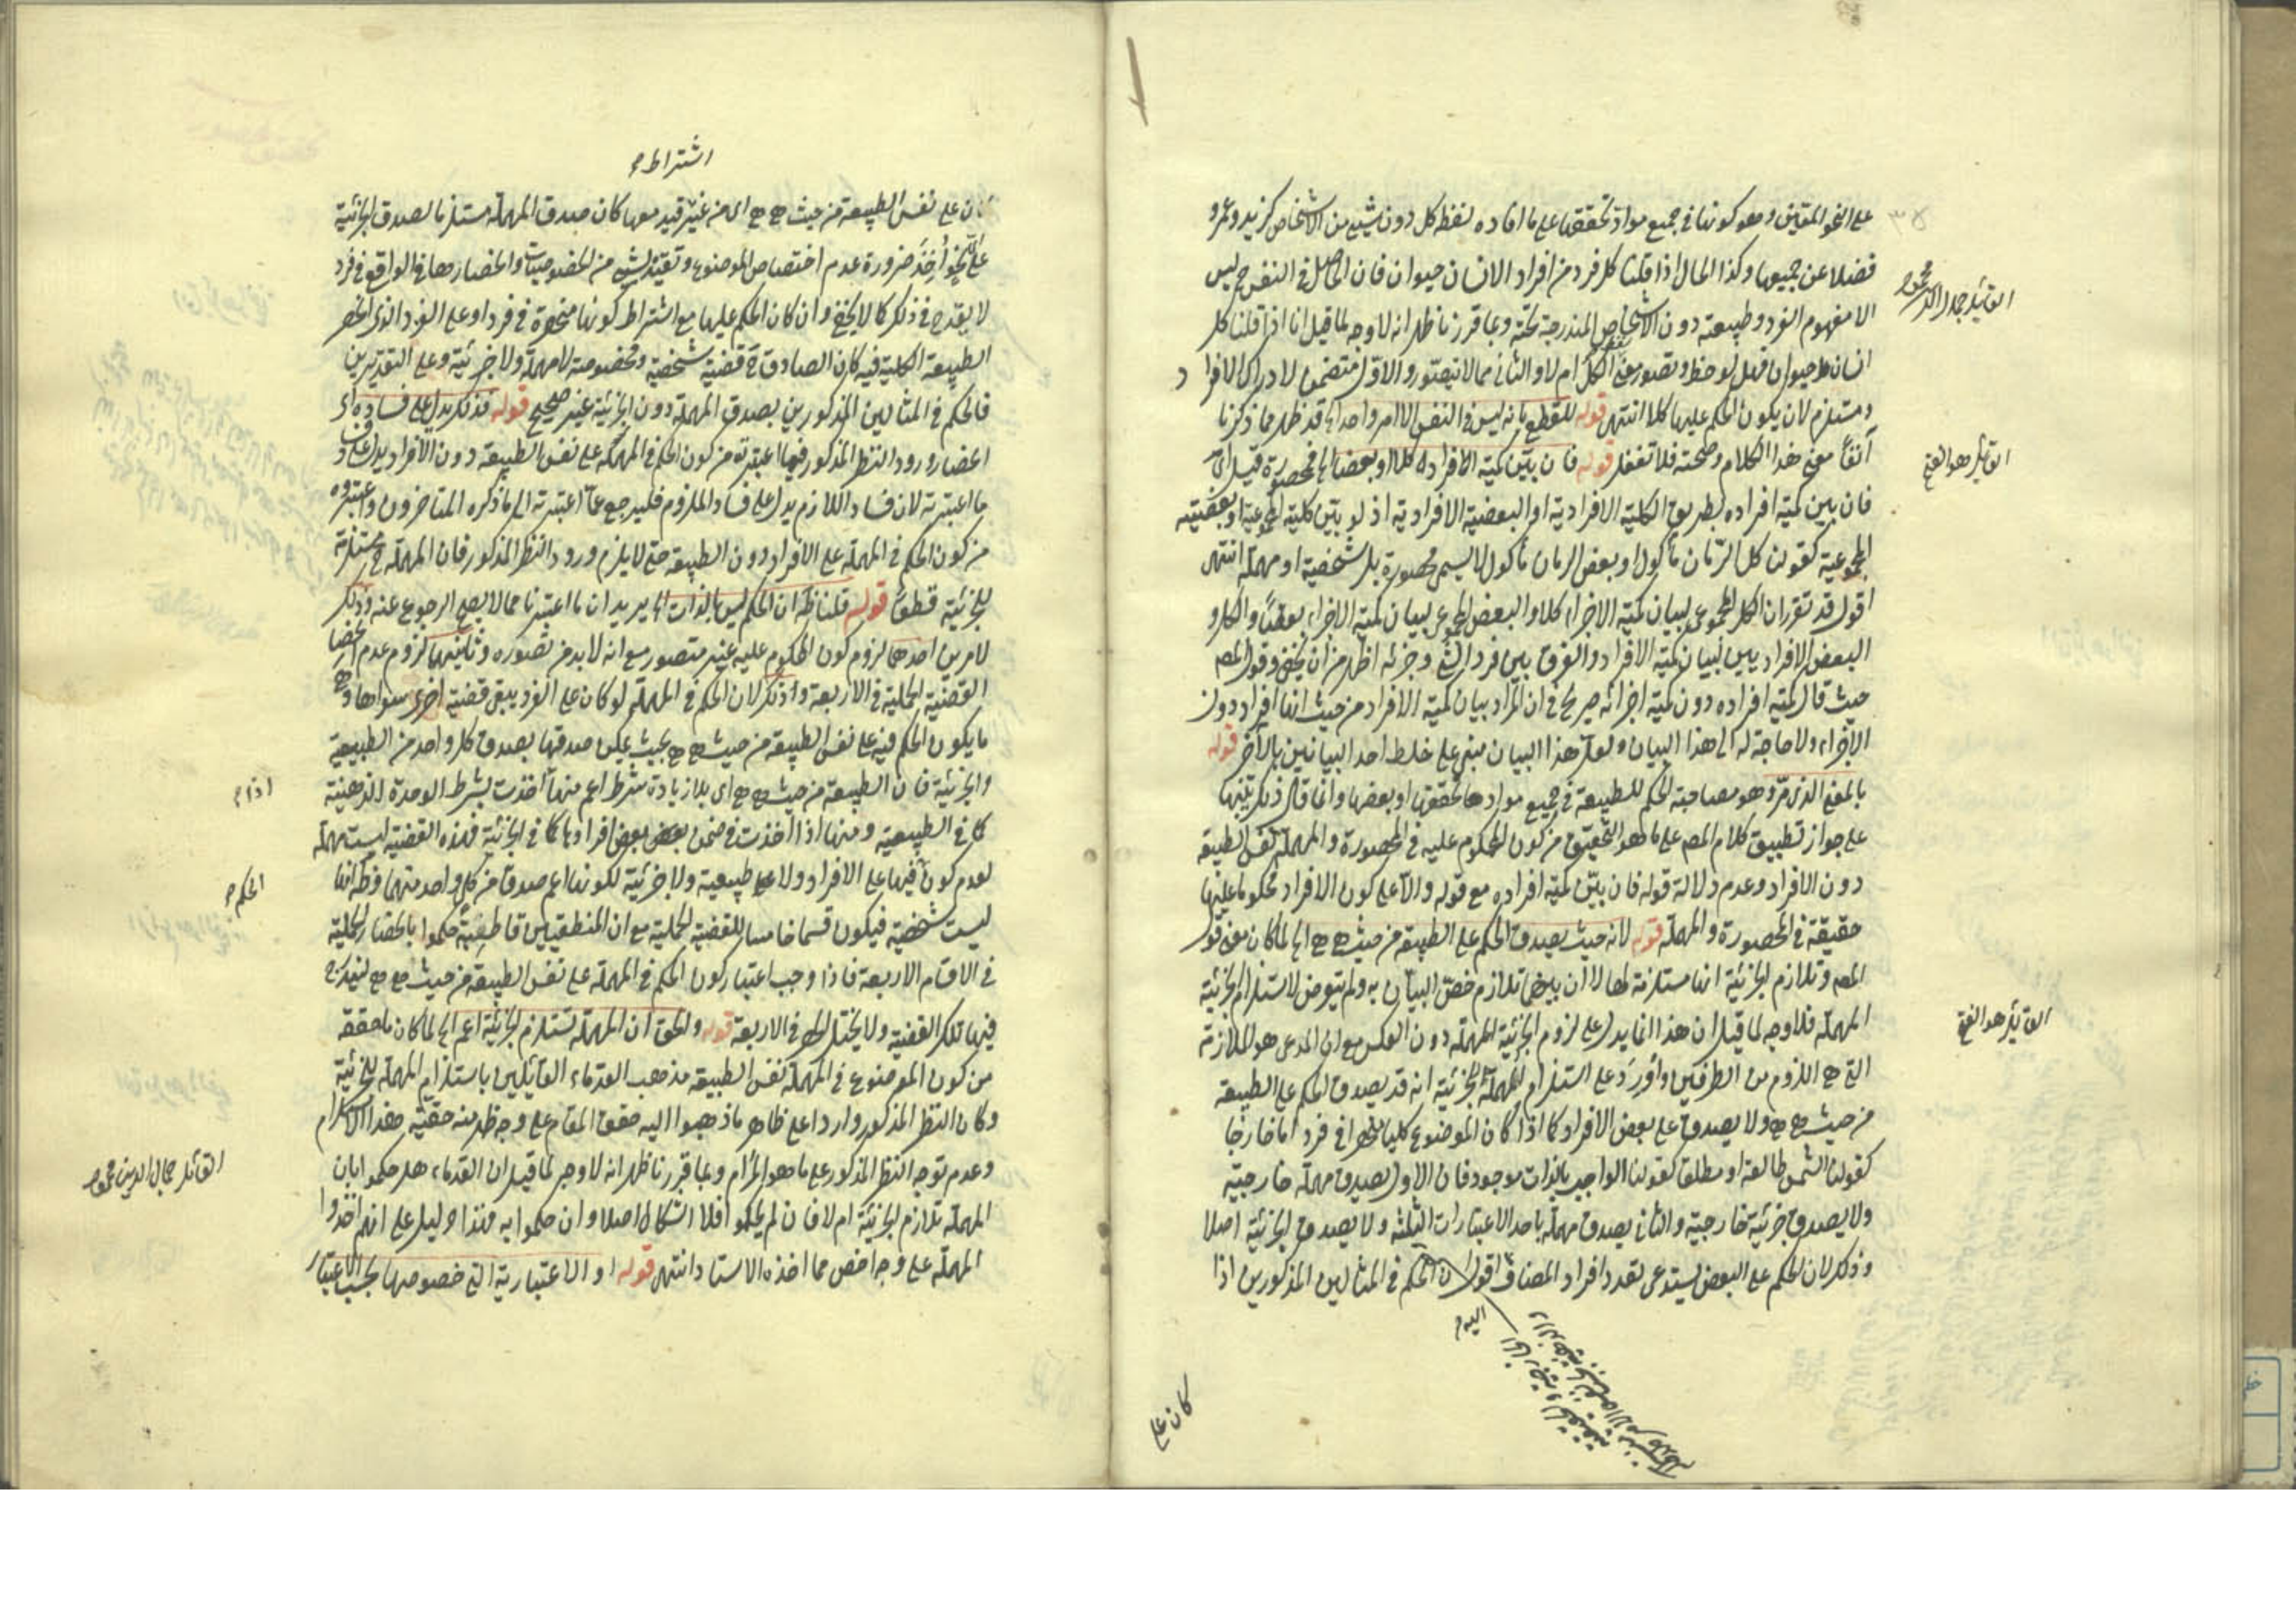 على النحو المعين وهو كونها في جميع مواد تحققها على ما افاده لفظ كل دون شيء من الاشخاص كزيد وعمرو
فضلا عن جميعها وكذا الحال اذا قلنا كل فرد من افراد الانسان حيوان فان الحاصل في النفس ح ليس
الا مفهوم الفرد وطبيعته دون الاشخاص المندرجة تحته وبما قررنا ظهر انه لا وجه لما قيل انا اذا قلنا كل
انسان حيوان فهل لوحظ وتصور معنى الكل ام لا والثاني مما لا يتصور والاول متضمن لادراك الافراد
ومستلزم لان يكون الحكم عليها كلا انتهى قوله للقطع بانه ليس في النفس الا امر واحد اه قد ظهر مما ذكرنا
آنفا معنى هذا الكلام وصحته فلا تغفل قوله فان بين كمية الافراد كلا او بعضا فمحصورة قيل اي
فان بين كمية افراده بطريق الكلية الافرادية او البعضية الافرادية اذ لو بين كلية المجموعية او بعضيته
المجموعية كقولنا كل الرمان مأكول او بعض الرمان مأكول لا يسمى محصورة بل شخصية او مهملة انتهى
اقول قد تقرر ان الكل المجموعي لبيان كمية الاجزاء كلا والبعض المجموعي لبيان كمية الاجزاء بعضا والكل و
البعض الافراديين لبيان كمية الافراد والفرق بين فرد الشيء وجزئه اظهر من ان يخفى وقول المص
حيث قال كمية افراده دون كمية اجزائه صريح في ان المراد بيان كمية الافراد من حيث انها افراد دون
الاجزاء ولا حاجة له الى هذا البيان ولعل هذا البيان مبني على خلط احد البيانين بالآخر قوله
بالمعنى الذي مر وهو مصاحبة الحكم للطبيعة في جميع موادها تحققها او بعضها وانما قال ذلك تنبيها
على جواز تطبيق كلام المص على ما هو التحقيق من كون المحكوم عليه في المحصورة والمهملة نفس الطبيعة
دون الافراد وعدم دلالة قوله فان بين كمية افراده مع قوله والا على كون الافراد محكوما عليها
حقيقة في المحصورة والمهملة قوله لانه حيث يصدق الحكم على الطبيعة من حيث هي هي اه لما كان معنى قول
المص وتلازم الجزئية انها مستلزمة لها لا ان بينهما تلازم خص البيان به ولم يتعرض لاستلزام الجزئية
المهملة فلا وجه لما قيل ان هذا انما يدل على لزوم الجزئية للمهملة دون العكس مع ان المدعى هو الملازمة
التي هي اللزوم من الطرفين واورد على استلزام المهملة للجزئية انه قد يصدق الحكم على الطبيعة
من حيث هي هي ولا يصدق على بعض الافراد كما اذا كان الموضوع كليا منحصرا في فرد اما خارجا
كقولنا الشمس طالعة او مطلقا كقولنا الواجب بالذات موجود فان الاول يصدق مهملة خارجية
ولا يصدق جزئية خارجية والثاني يصدق مهملة باحد الاعتبارات الثلثة ولا يصدق الجزئية اصلا
وذلك لان الحكم على البعض يستدعي تعدد افراد المضاف اقول ان الحكم في المثالين المذكورين اذا
اليه
كان على
القائل جمال الدين محمود
القائل هو الفتح
القائل هو الفتح
اشتراط
كان على نفس الطبيعة من حيث هي هي اي من غير قيد معها كان صدق المهملة مستلزما لصدق الجزئية
على اي نحو اخذ ضرورة عدم اختصاص الموضوع وتقيده بشيء من الخصوصيات وانحصارها في الواقع في فرد
لا يقدح في ذلك كما لا يخفى وان كان الحكم عليها مع اشتراط كونها منحصرة في فرد او على الفرد الذي انحصر
الطبيعة الكلية فيه كان الصادق ح قضية شخصية ومخصوصة لا مهملة ولا جزئية وعلى التقديرين
فالحكم في المثالين المذكورين بصدق المهملة دون الجزئية غير صحيح قوله فذلك يدل على فساده اي
ورود النظر المذكور فيما اعتبرته من كون الحكم في المهملة على نفس الطبيعة دون الافراد يدل على فساد
ما اعتبرته لان فساد اللازم يدل على فساد الملزوم فليرجع عما اعتبرته الى ما ذكره المتأخرون واعتبروه
من كون الحكم في المهملة على الافراد دون الطبيعة حتى لا يلزم ورود النظر المذكور فان المهملة ح مستلزمة
للجزئية قطعا قوله قلنا ظ ان الحكم ليس بالذات اه يريد ان ما اعتبرنا مما لا يصح الرجوع عنه وذلك
لامرين احدهما لزوم كون المحكوم عليه غير متصور مع انه لا بد من تصوره وثانيهما لزوم عدم انحصار
القضية الحملية في الاربعة وذلك لان الحكم في المهملة لو كان على الفرد يبقى قضية اخرى سواها وهي
ما يكون الحكم فيه على نفس الطبيعة من حيث هي هي بحيث يمكن صدقها بصدق كل واحد من الطبيعية
والجزئية فان الطبيعة من حيث هي هي اي بلا زيادة شرط اعم منها اخذت بشرط الوحدة الذهنية
كما في الطبيعية ومنها اذا اخذت في ضمن بعض افرادها كما في الجزئية فهذه القضية ليست مهملة
لعدم كون فيها على الافراد ولا طبيعية ولا جزئية لكونها اعم صدقا من كل واحد منهما وظ انها
ليست شخصية فيكون قسما خامسا للقضية الحملية مع ان المنطقيين قاطبة حكموا بانحصار الحملية
في الاقسام الاربعة فاذا وجب اعتبار كون الحكم في المهملة على نفس الطبيعة من حيث هي هي ليندرج
فيها تلك القضية ولا يختل الحصر في الاربعة قوله والحق ان المهملة تستلزم الجزئية اعم اه لما كان ما حققه
من كون الموضوع في المهملة نفس الطبيعة مذهب القدماء القائلين باستلزام المهملة للجزئية
وكان النظر المذكور واردا على ظاهر ما ذهبوا اليه حقق المقام على وجه ظهر منه حقية هذا الاستلزام
وعدم توجه النظر المذكور على ما هو المرام وبما قررنا ظهر انه لا وجه لما قيل ان القدماء هل حكموا بان
المهملة تلازم الجزئية ام لا فان لم يحكموا فلا اشكال اصلا وان حكموا به فهذا دليل على انهم اخذوا
المهملة على وجه اخص مما اخذه الاستاد انتهى قوله او الاعتبارية التي خصوصها بحسب الاعتبار
اذا
الحكم
القائل جمال الدين محمود